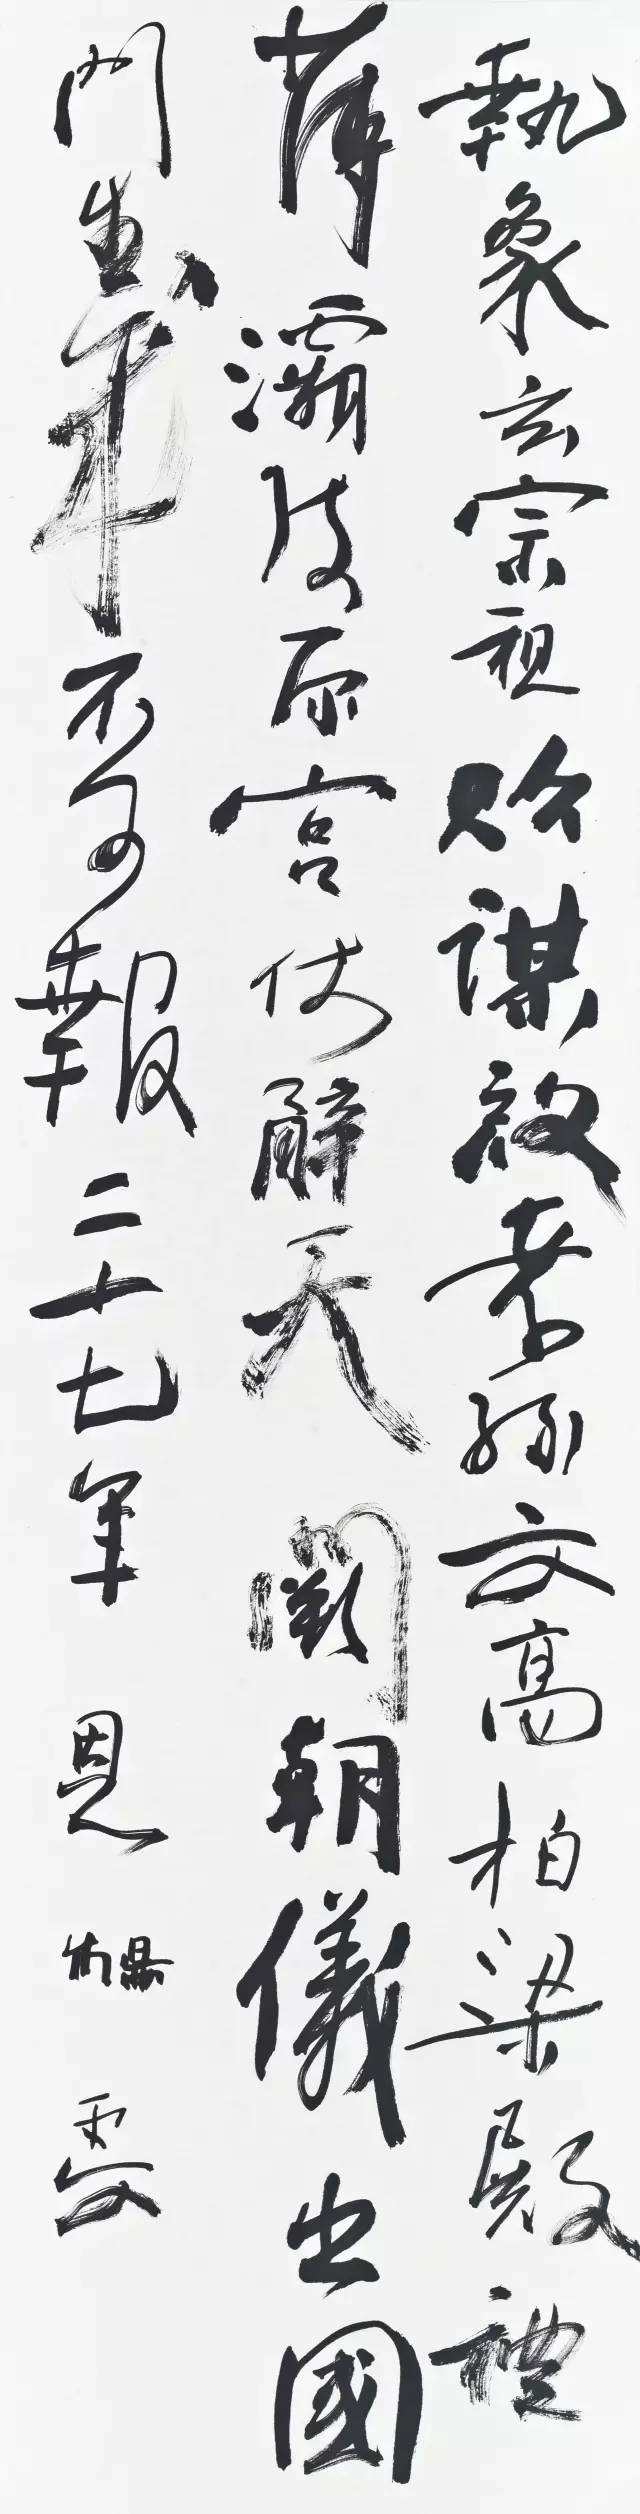 執象玄宗祖貽謀啟孝孫文高柏梁殿禮
薄灞陵原宮仗辭天闕朝儀出國
門生成不可報二十七年恩